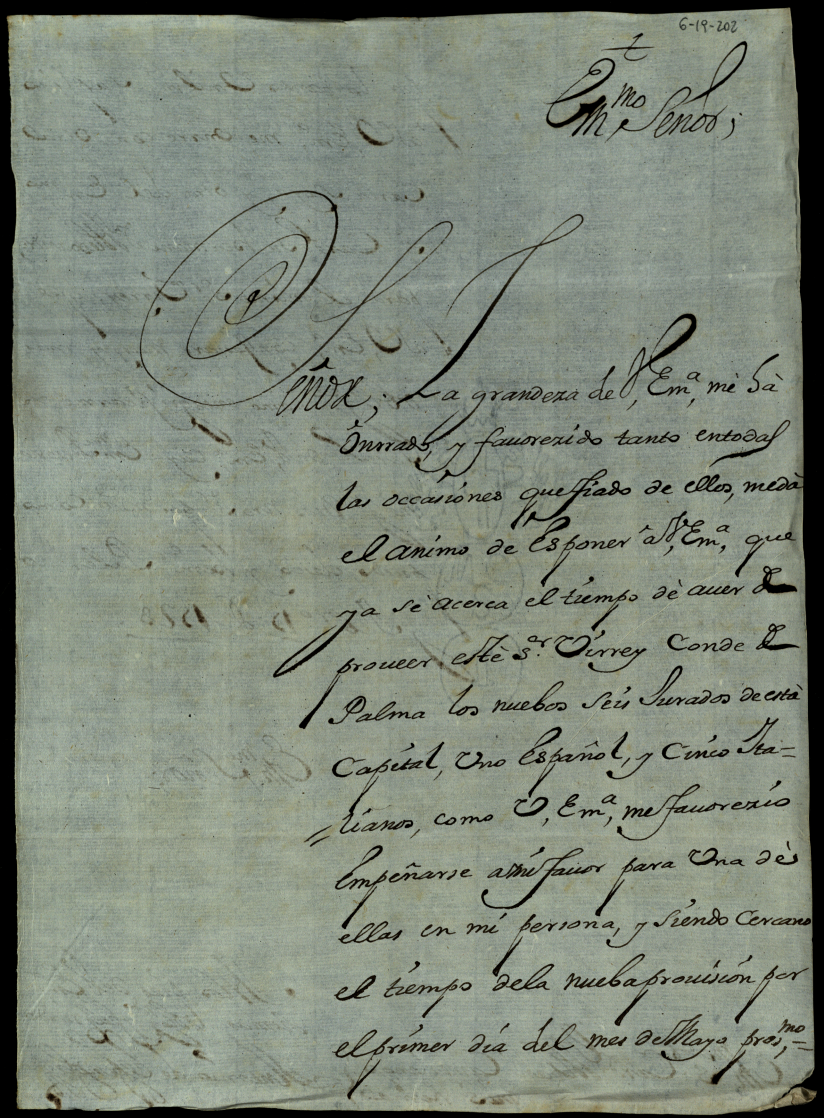 6-19-202
Em.mo Señor;
Señor; La grandeza de V, Em.a, mè hà
ònrrado, y fauorezido tanto entodas
las occasiónes que fiado de ellos, medà
el animo de Esponer à V, Em.a, que
ya sè acerca el tiempo dè auer de
proueer estè s.or Virrey Conde de
Palma los nuebos seis Jurados de està
Capital, Uno Español, y Cinco Ita=
=lianos, como V, Em.a, me fauorezio
Empeñarse a mi fauor para Una dè
ellas en mi persona, y siendo cercano
el tiempo dela nueba prouisión por
el primer dia del mes de Mayo pros,mo=